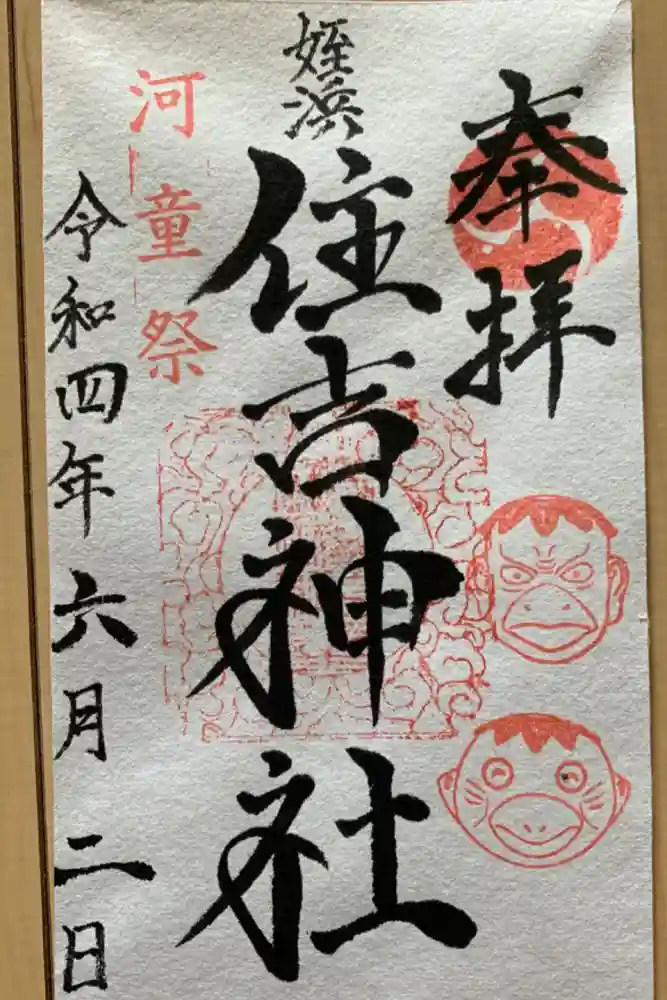 奉拝
姪浜
住吉神社
河童祭
令和四年六月二日